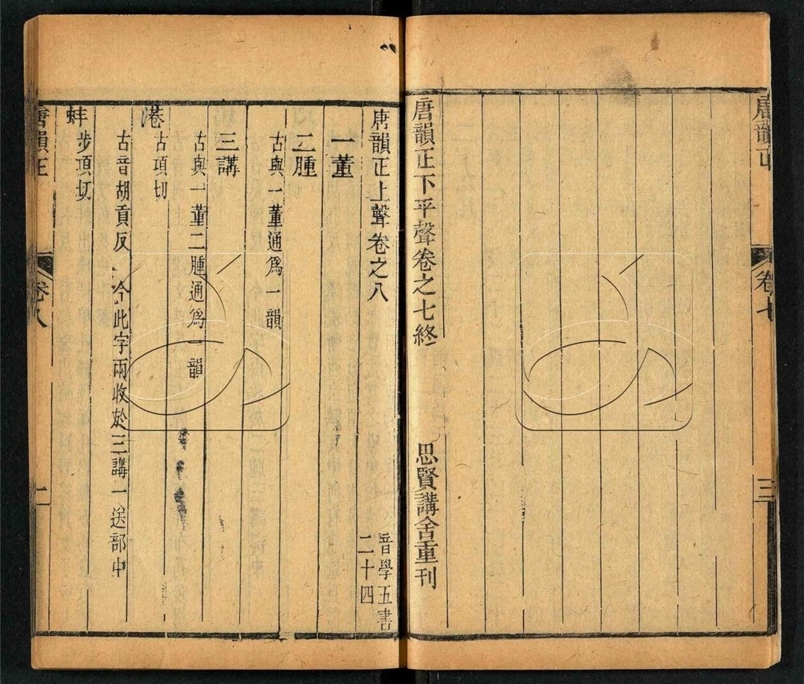 唐韻正
卷七
三
唐韻正下平聲卷之七終
思賢講舍重刊
唐韻正上聲卷之八
音學五書
二十四
一董
二腫
古與一董通爲一韻
三講
古與一董二腫通爲一韻
港
古項切
古音胡貢反
今此字兩收於三講一送部中
蚌
步項切
唐韻正
卷八
一